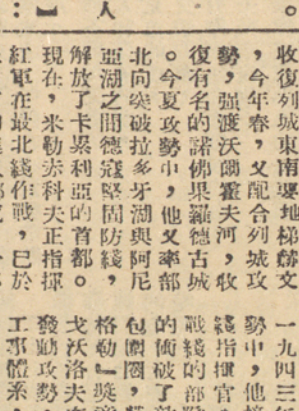 人
收復列城東南要地䔵文
，今年春，又配合列城攻
勢，强渡沃爾霍夫河，收
復有名的諾佛果羅德古城
。今夏攻勢中，他又率部
北向突破拉多牙湖與阿尼
亞湖之間德寇堅固防綫，
解放了卡累利亞的首都。
現在，米勒赤科夫正指揮
紅軍在最北綫作戰，已於
一九四三
勢中，他
綫指揮官
戰綫的部
的衝破了
包圍圈，
格勒』獎
戈沃洛夫
發動攻勢
工事體系